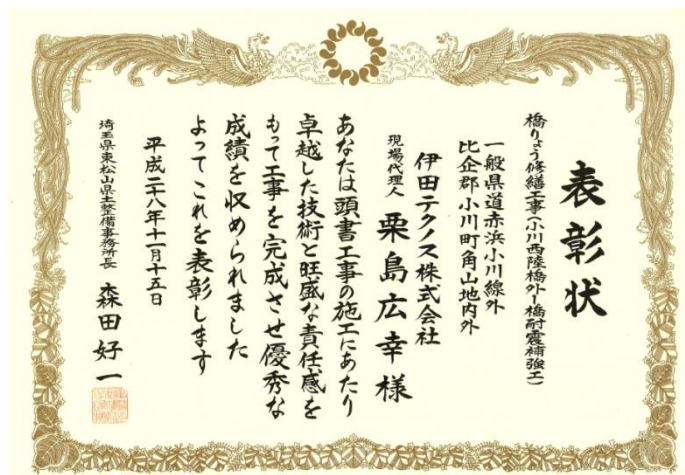 表彰状
橋りょう修繕工事(小川西陸橋外1橋耐震補強工)
一般県道赤浜小川線外
比企郡小川町角山地内外
伊田テクノス株式会社
現場代理人 栗島広幸様
あなたは頭書工事の施工にあたり
卓越した技術と旺盛な責任感を
もって工事を完成させ優秀な
成績を収められました
よってこれを表彰します
平成二十八年十一月十五日
埼玉県東松山県土整備事務所長 森田好一